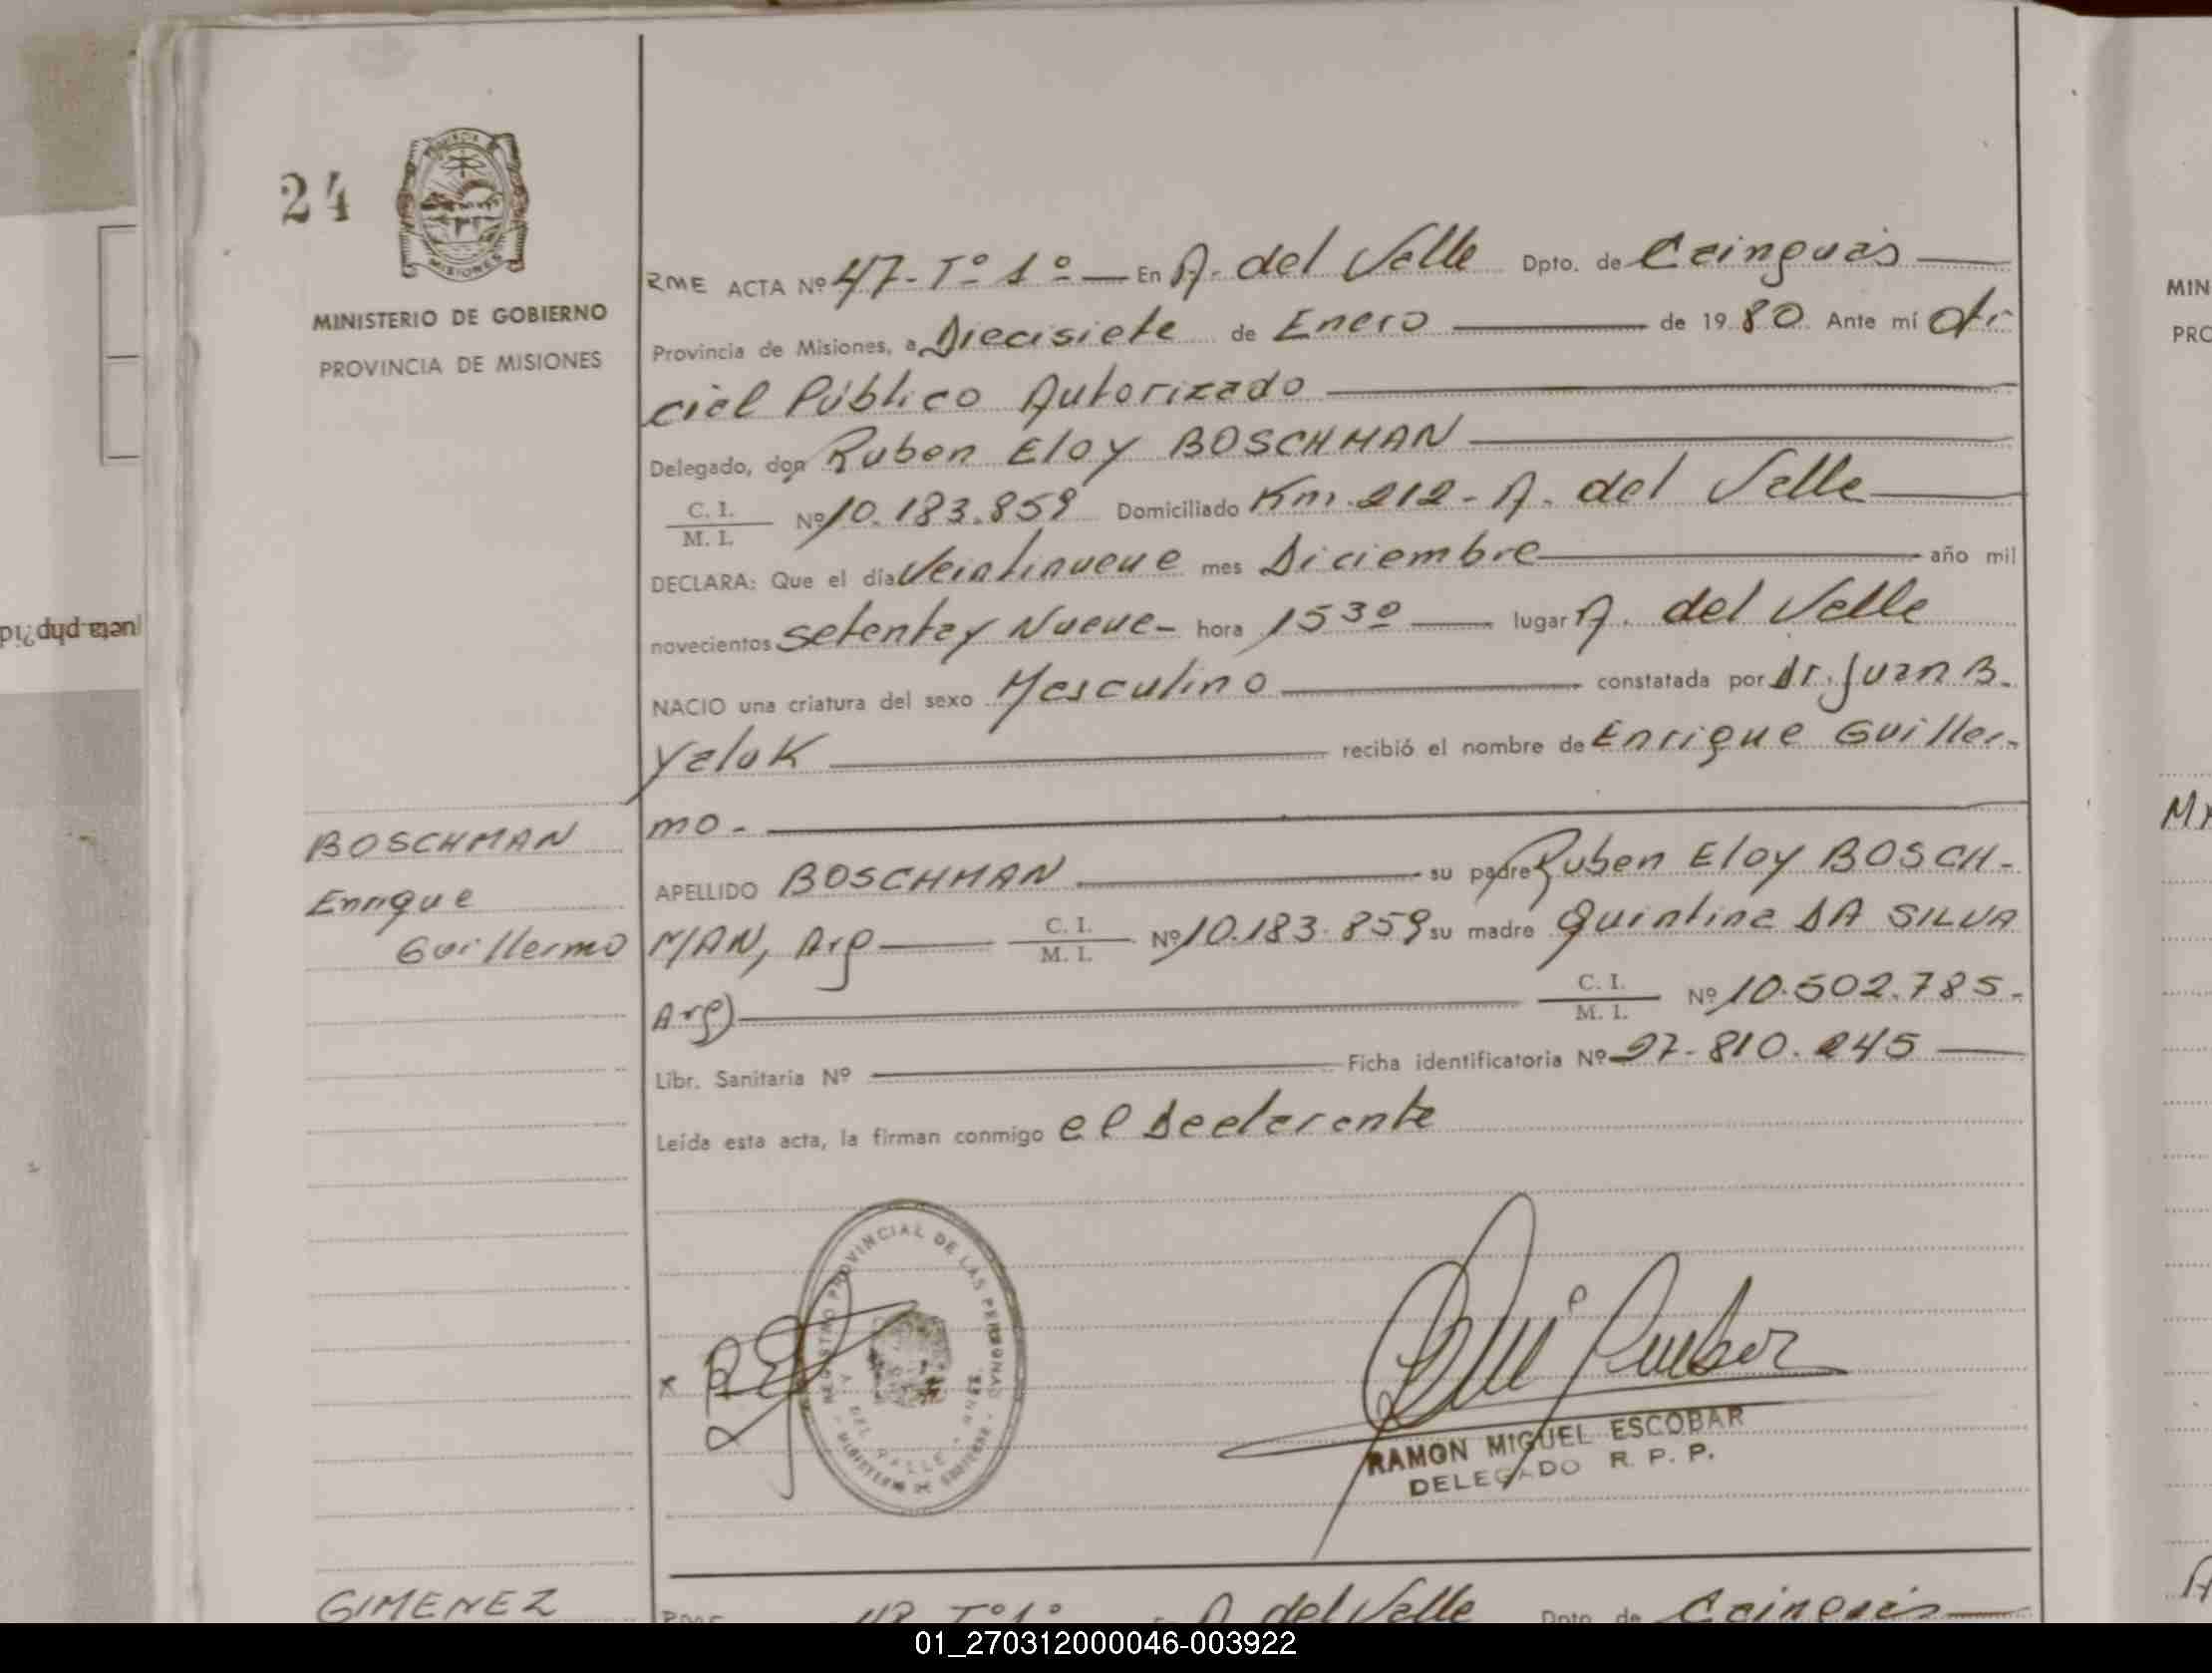 24
MISIONES
MINISTERIO DE GOBIERNO
PROVINCIA DE MISIONES
RME ACTA Nº 47-Tº 1º — En A. del Valle Dpto. de Cainguás
Provincia de Misiones, a Diecisiete de Enero de 1980 Ante mí Ofi-
cial Público Autorizado
Delegado, don Ruben Eloy BOSCHMAN
C. I. / M. I. Nº 10.183.859 Domiciliado Km. 212 - A. del Valle
DECLARA: Que el día Veintinueve mes Diciembre año mil
novecientos setenta y Nueve - hora 15 30 lugar A. del Valle
NACIO una criatura del sexo Masculino constatada por Dr. Juan B.
Yaluk recibió el nombre de Enrique Guiller-
mo -
BOSCHMAN
Enrique
Guillermo
APELLIDO BOSCHMAN su padre Ruben Eloy BOSCH-
MAN, Arg C. I. / M. I. Nº 10.183.859 su madre Quintina DA SILVA
Arg) C. I. / M. I. Nº 10.502.785.-
Libr. Sanitaria Nº Ficha identificatoria Nº 27-810.245
Leída esta acta, la firman conmigo el Declarante
x
PROVINCIAL DE LAS PERSONAS
A. DEL VALLE
RAMON MIGUEL ESCOBAR
DELEGADO R. P. P.
GIMENEZ
A. del Valle Dpto. de Cainguás
MIN
PRO
01_270312000046-003922